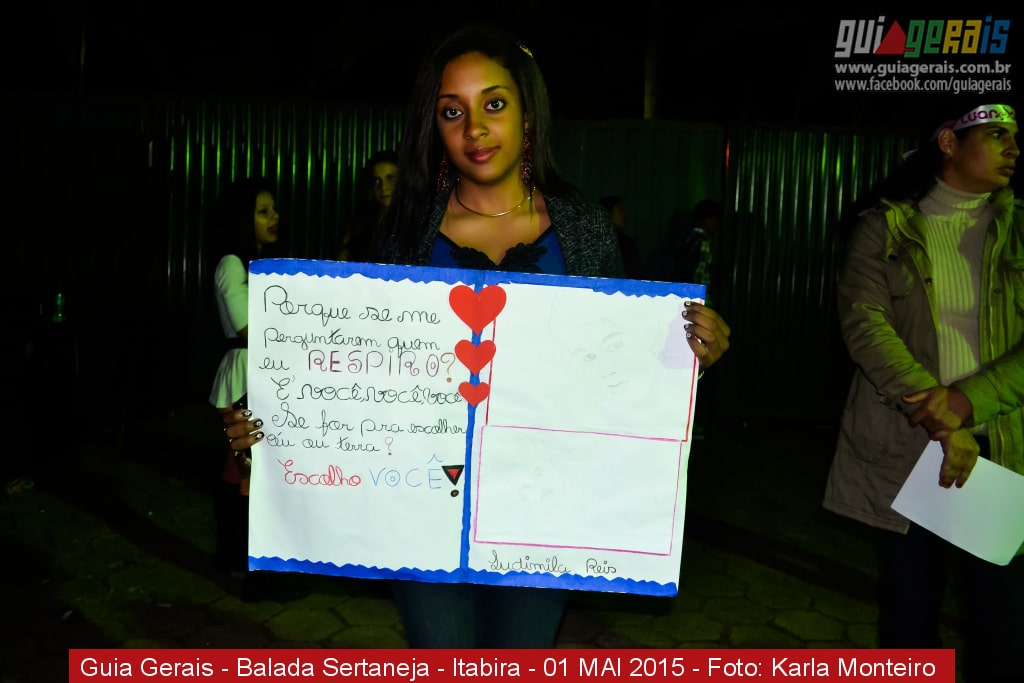 guiagerais
www.guiagerais.com.br
www.facebook.com/guiagerais
LUAN
Porque se me
perguntarem quem
eu RESPIRO?
É VOCÊ,VOCÊ,VOCÊ
Se for pra escolher
céu ou terra?
Escolho VOCÊ!
Ludimila Reis
Guia Gerais - Balada Sertaneja - Itabira - 01 MAI 2015 - Foto: Karla Monteiro